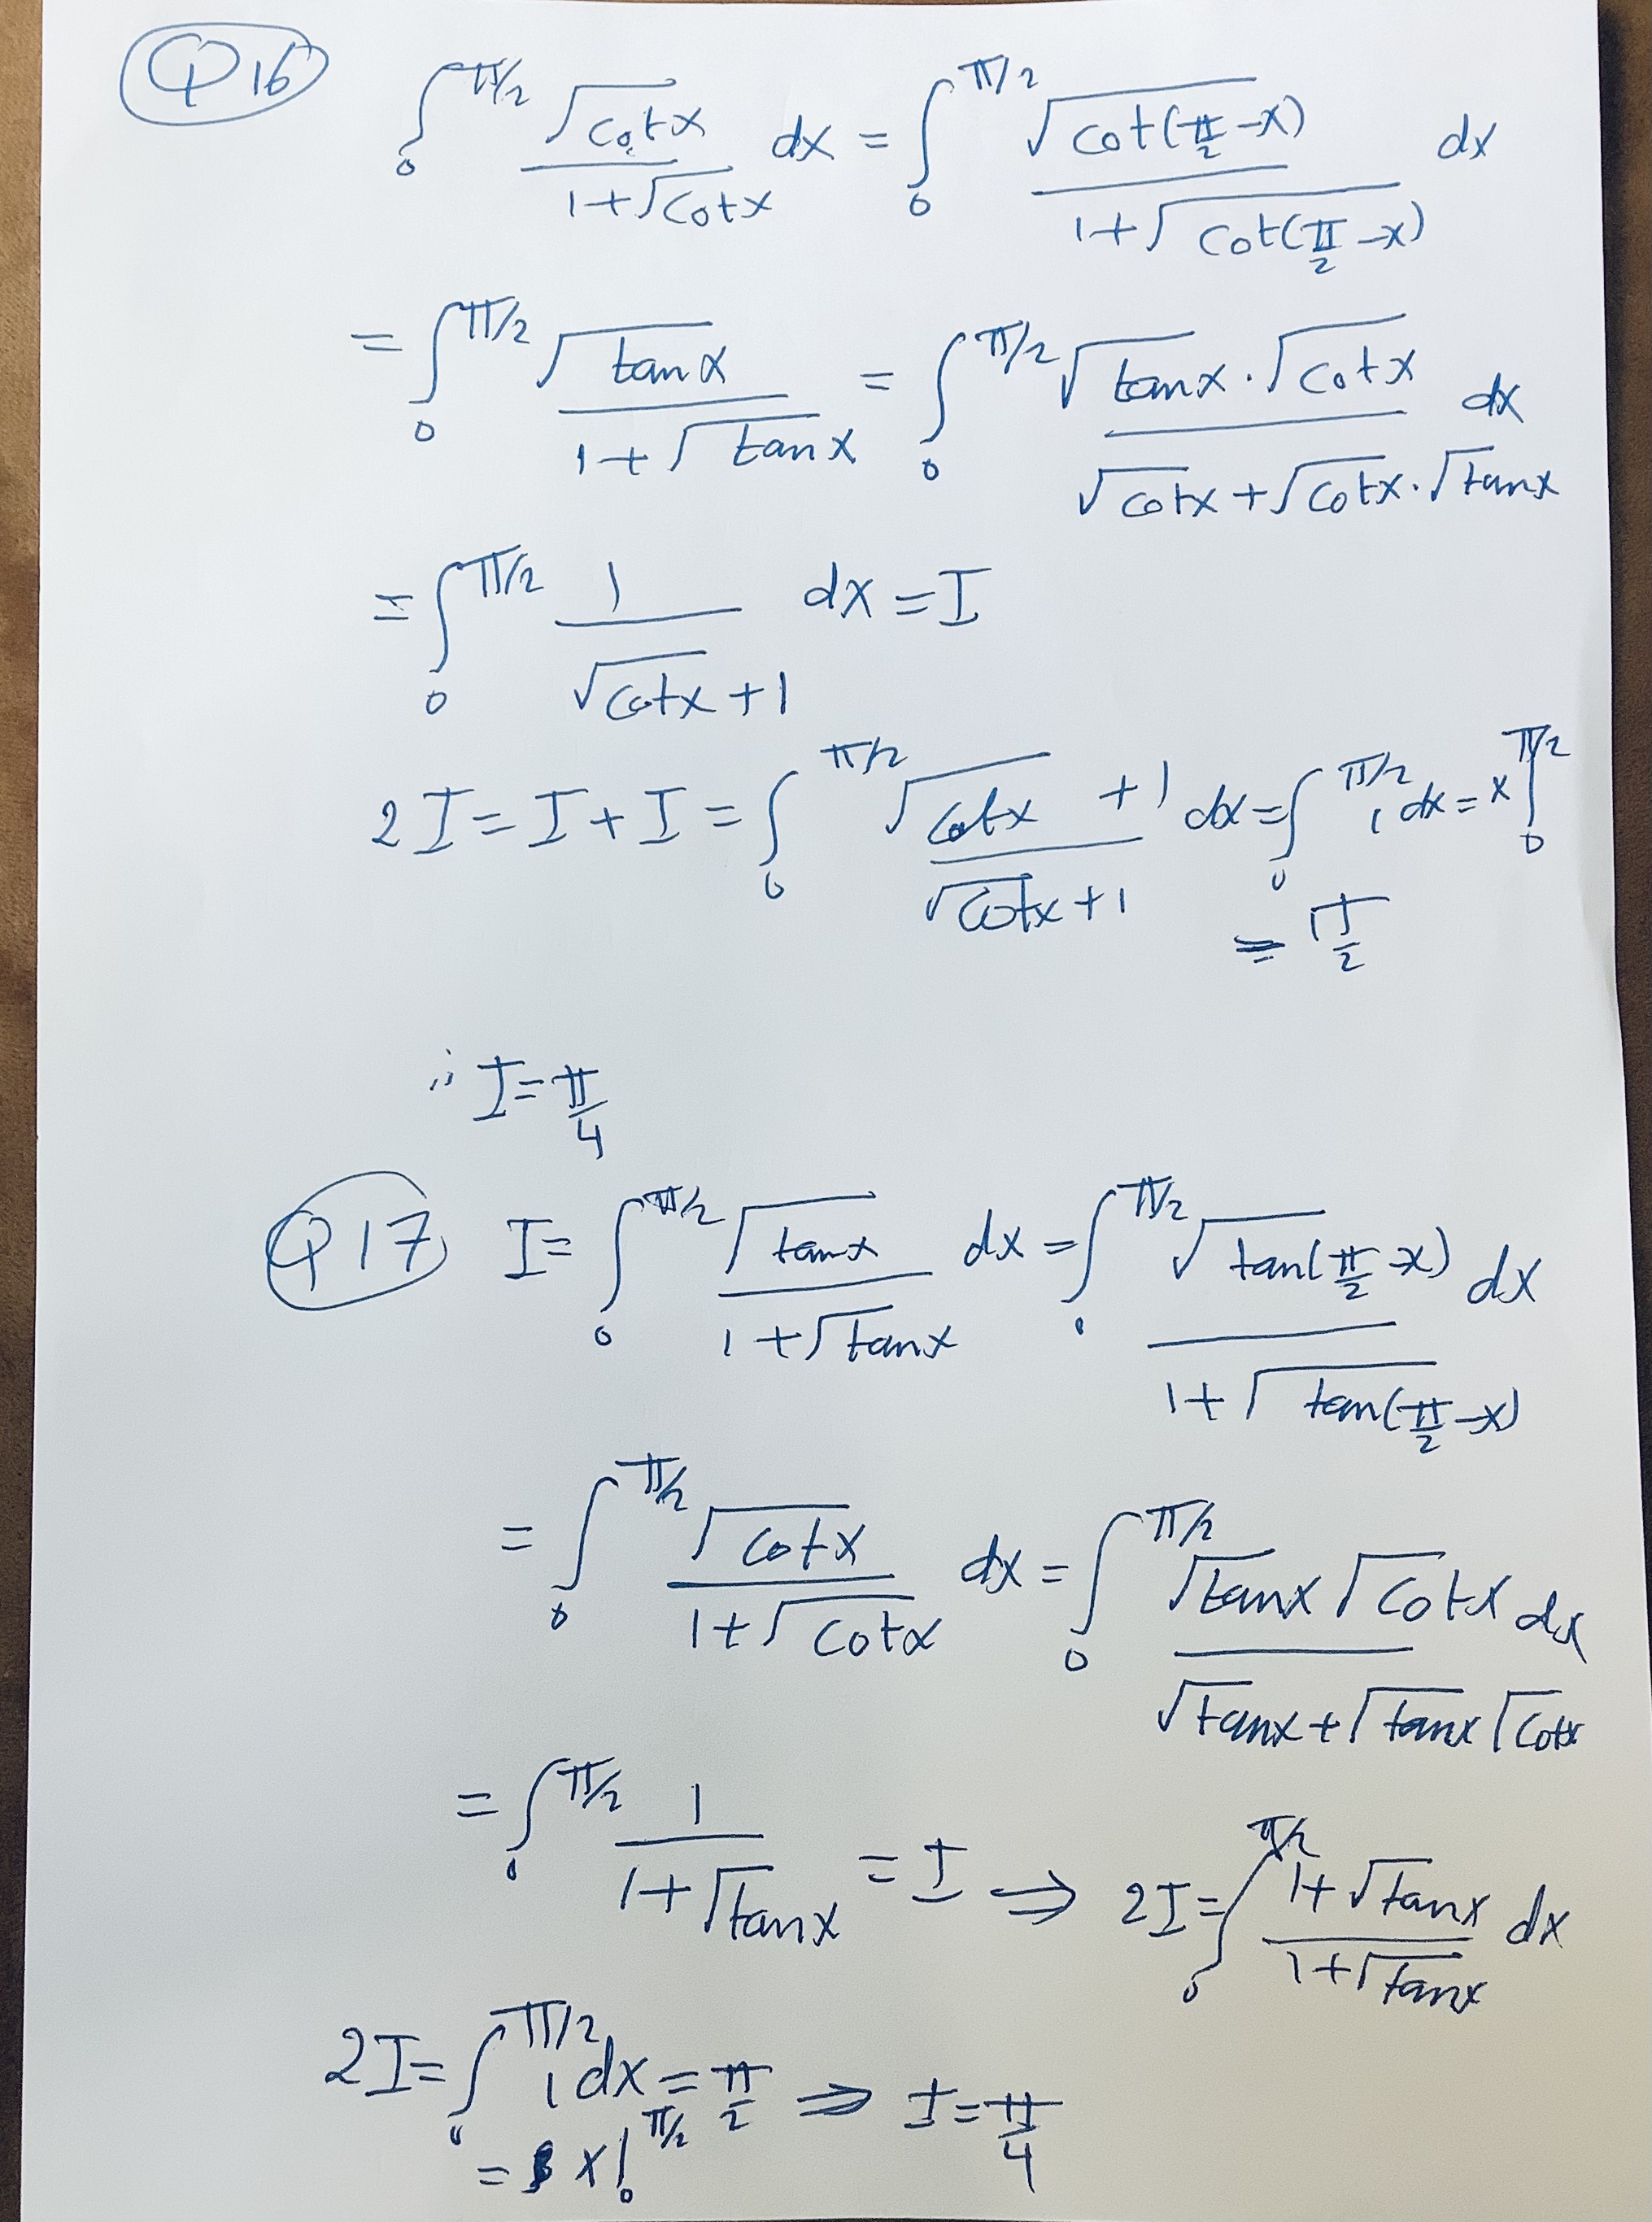 Q16 ∫₀^{π/2} √cotx / (1+√cotx) dx = ∫₀^{π/2} √cot(π/2 −x) / (1+√cot(π/2 −x)) dx
= ∫₀^{π/2} √tanx / (1+√tanx) = ∫₀^{π/2} √tanx · √cotx / (√cotx + √cotx · √tanx) dx
= ∫₀^{π/2} 1 / (√cotx +1) dx = I
2I = I + I = ∫₀^{π/2} (√cotx +1) / (√cotx +1) dx = ∫₀^{π/2} 1 dx = x |₀^{π/2}
= π/2
∴ I = π/4
Q17 I = ∫₀^{π/2} √tanx / (1+√tanx) dx = ∫₀^{π/2} √tan(π/2 −x) / (1+√tan(π/2 −x)) dx
= ∫₀^{π/2} √cotx / (1+√cotx) dx = ∫₀^{π/2} √tanx √cotx / (√tanx + √tanx √cotx) dx
= ∫₀^{π/2} 1 / (1+√tanx) = I ⇒ 2I = ∫₀^{π/2} (1+√tanx) / (1+√tanx) dx
2I = ∫₀^{π/2} 1 dx = π/2 ⇒ I = π/4
= x |₀^{π/2}